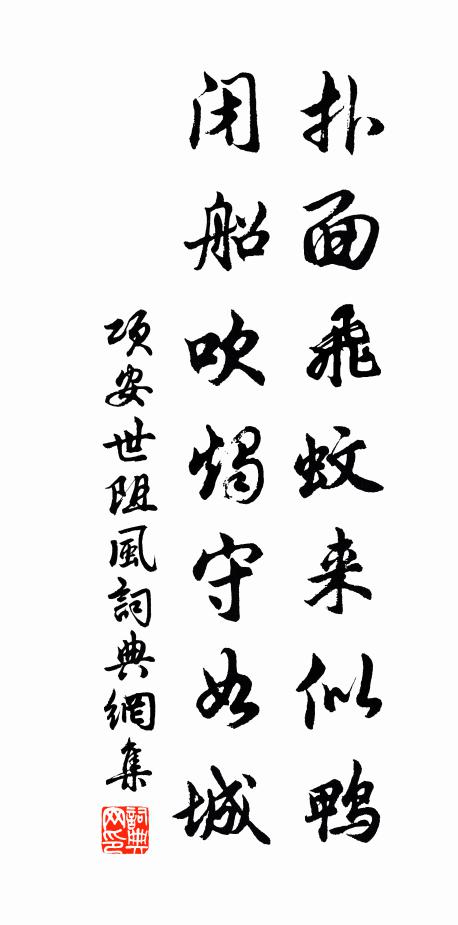 扑面飛蚊来似鸭
闭船吹燭守如城
项安世阻風詞典網集
詞典网印